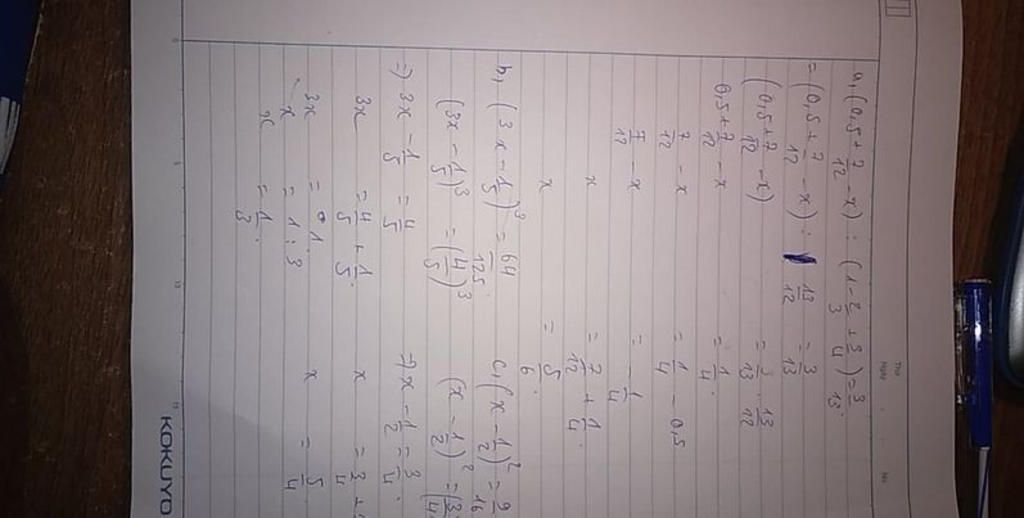 Thứ
Ngày
No
a, (0,5 + 7/12 - x) : (1 - 2/3 + 3/4) = 3/13.
= (0,5 + 7/12 - x) : 13/12 = 3/13
(0,5 + 7/12 - x) = 3/13 . 13/12
0,5 + 7/12 - x = 1/4.
7/12 - x = 1/4 - 0,5
7/12 - x = - 1/4
x = 7/12 + 1/4.
x = 5/6.
b, (3x - 1/5)³ = 64/125.
(3x - 1/5)³ = (4/5)³
=> 3x - 1/5 = 4/5
3x = 4/5 + 1/5.
3x = 1.
x = 1 : 3
x = 1/3.
c, (x - 1/2)² = 9/16
(x - 1/2)² = (3/4
=> x - 1/2 = 3/4.
x = 3/4 +
x = 5/4
KOKUYO